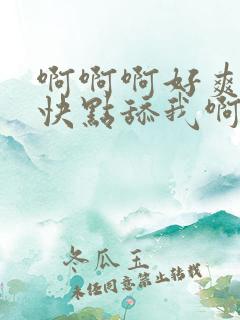 啊啊啊好爽
快點舔我啊
冬瓜玉
未经同意禁止转载